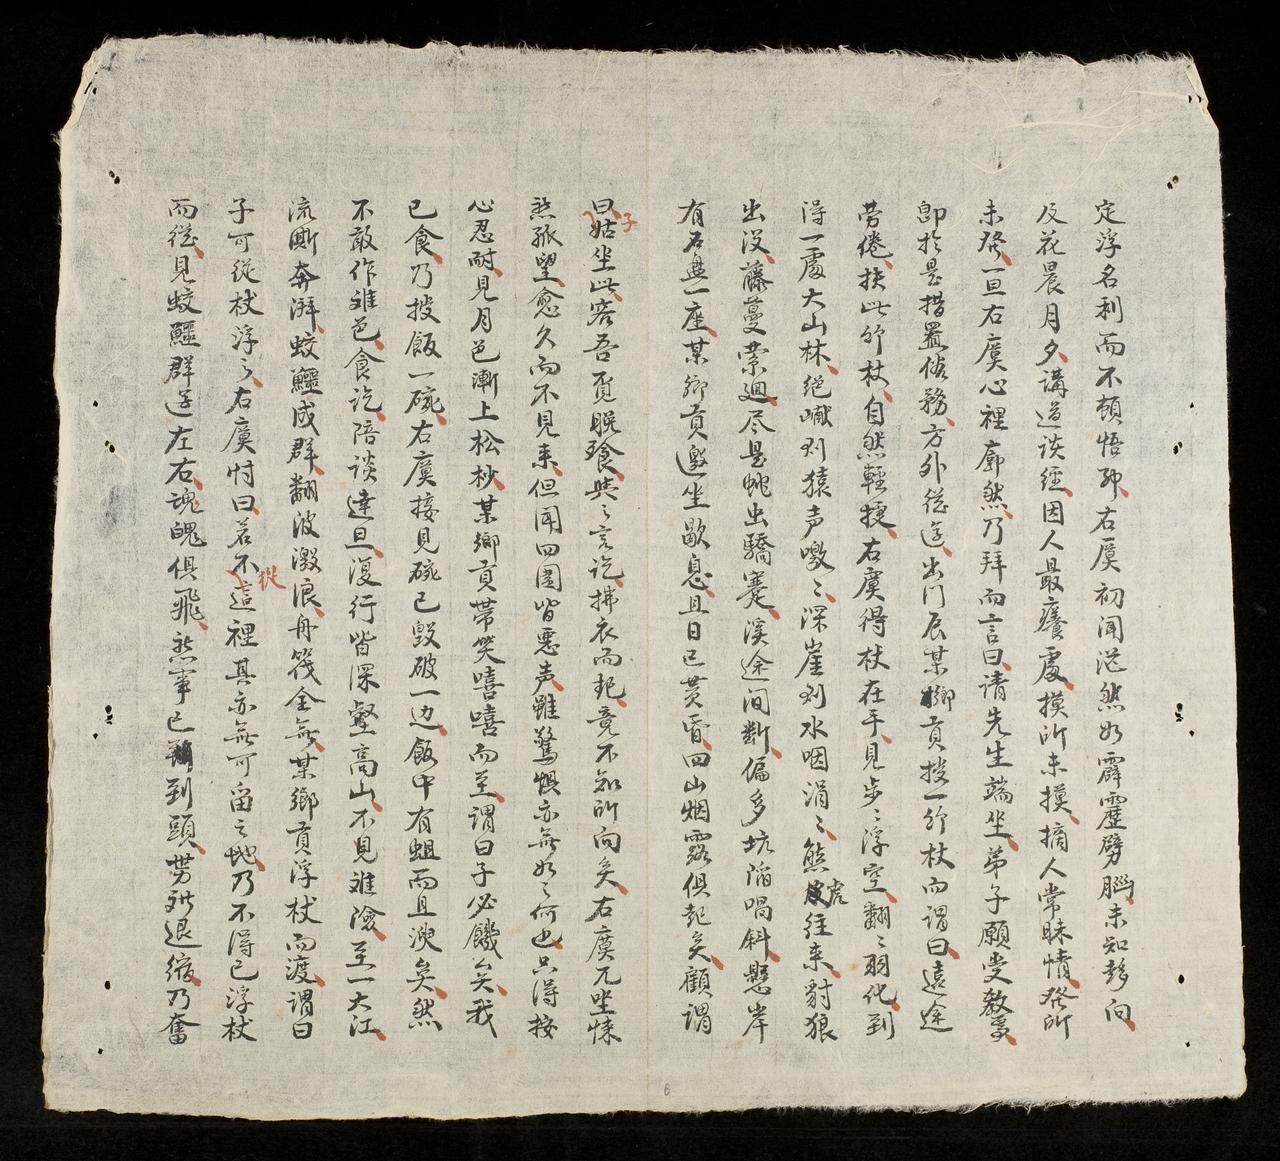 定浮名利而不頓悟耶右虞初聞茫然如霹靂劈腦未知趍向
及花晨月夕講道談經因人最癢處摸所未摸摘人常昧情發所
未發一旦右虞心裡廓然乃拜而言曰請先生端坐弟子願受教焉
卽於是措置俗務方外從遊出門辰某鄉貢授一竹杖而謂曰遠途
勞倦扶此竹杖自然輕捷右虞得杖在手見步〻浮空翻〻羽化到
得一處大山林絕巘则猿声嗷〻深崖则水咽涓〻熊虎往來豺狼
出没藤蔓縈迴尽是蛇虫驕蹇溪途间断偏多坑陷喎斜懸岸
有石盘一座某鄉貢邀坐歇息且日已黄昏四山烟露俱起矣顧謂
曰子姑坐此容吾覓晚飱與〻言訖拂衣而起竟不知所向矣右虞兀坐悚
然孤望愈久而不見来但闻四圍皆悪声雖驚惧亦無如之何也只得按
心忍耐見月色漸上松杪某鄉貢帶笑嘻嘻而至謂曰子必饑矣我
已食乃授飯一碗右虞接見碗已毁破一边飯中有蛆而且溲矣然
不敢作难色食訖陪谈達旦復行皆深壑高山不見难險至一大江
流澌奔湃蛟鱷成群翻波激浪舟筏全無某鄉貢浮杖而渡謂曰
子可從杖浮之右虞忖曰若不從這裡其亦無可留之地乃不得已浮杖
而從見蛟鱷群逆左右魂魄俱飛然事已到頭势难退縮乃奮